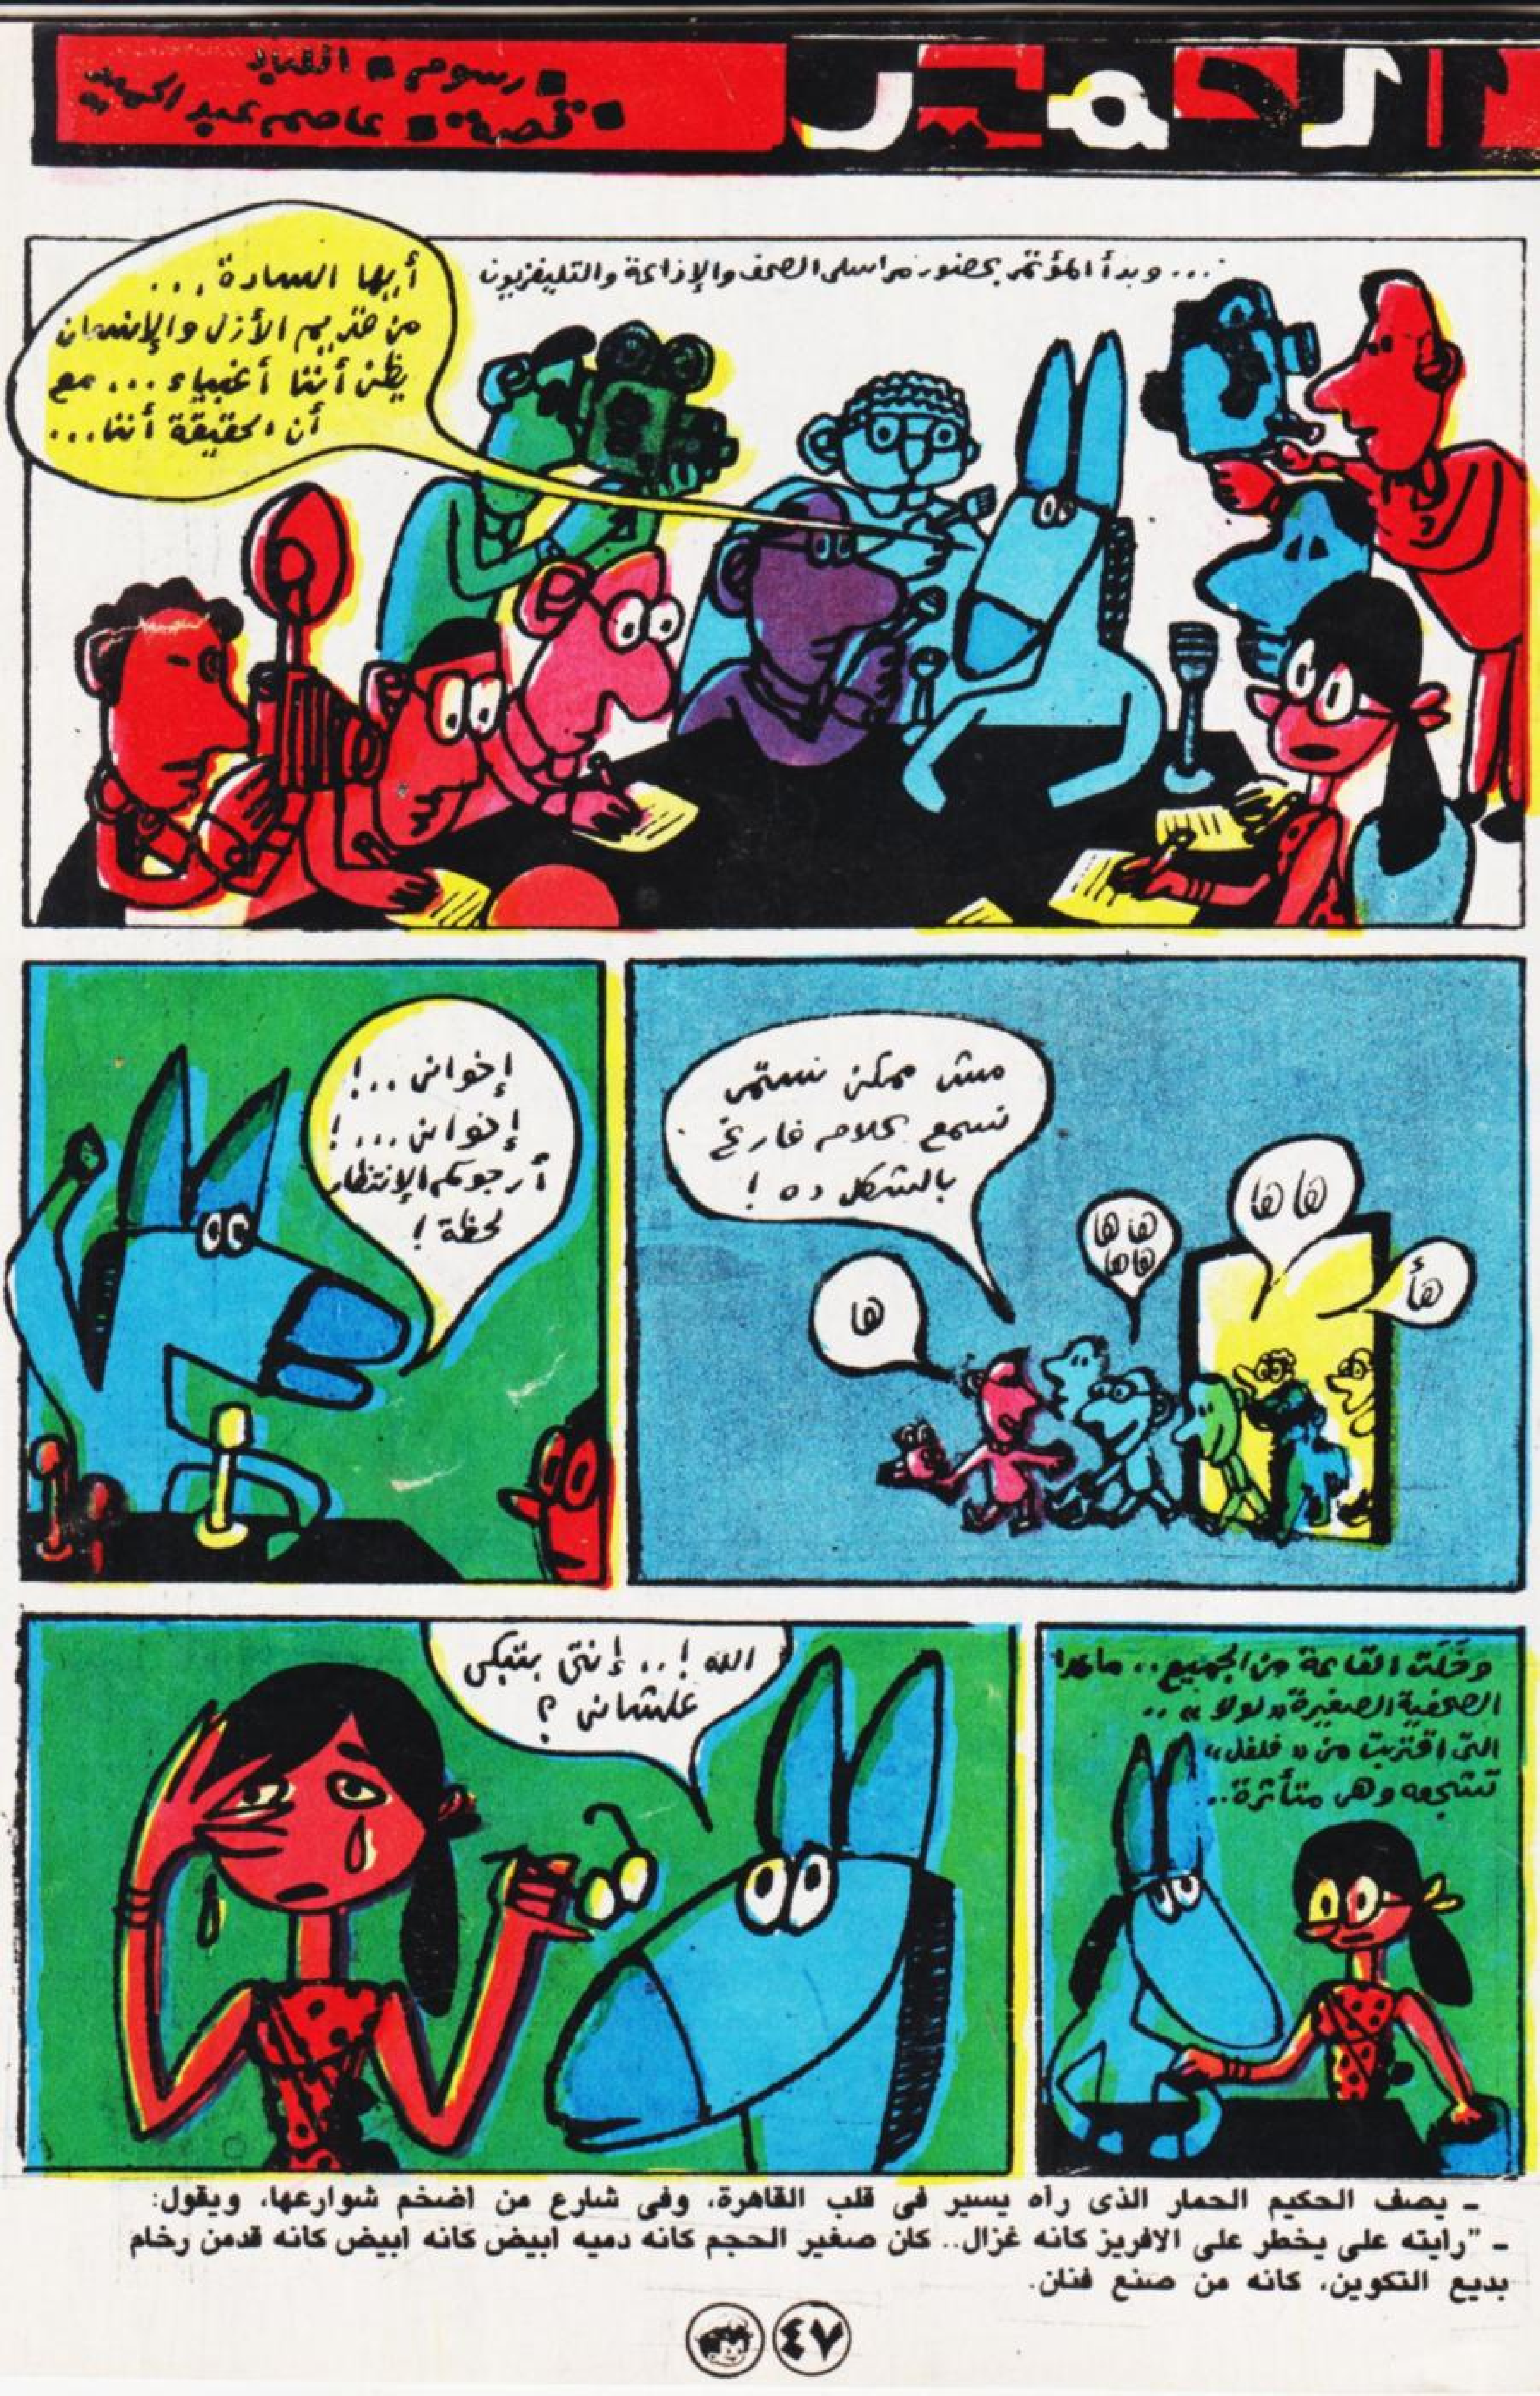 الحمير
▪ رسوم ▪ اللباد
▪ قصة ▪ عاصم عبد الحميد
... وبدأ المؤتمر بحضور مراسلى الصحف والإذاعة والتليفزيون
أيها السادة...
من قديم الأزل والإنسان
يظن أننا أغبياء ... مع
أن الحقيقة أننا...
مش ممكن نستمر
نسمع كلام فارغ
بالشكل ده !
ها
ها ها
هاها
ها ها
هأ
إخوانى ..!
إخوانى ...!
أرجوكم الإنتظار
لحظة !
وخلت القاعة من الجميع .. ماعدا
الصحفية الصغيرة « لولا » ..
التى اقتربت من « فلفل »
تشجعه وهى متأثرة ..
الله ! .. إنتى بتبكى
علشانى ؟
ـ يصف الحكيم الحمار الذى رآه يسير فى قلب القاهرة، وفى شارع من اضخم شوارعها، ويقول:
ـ "رايته على يخطر على الافريز كانه غزال.. كان صغير الحجم كانه دميه ابيض كانه ابيض كانه قدمن رخام
بديع التكوين، كانه من صنع فنان.
٤٧